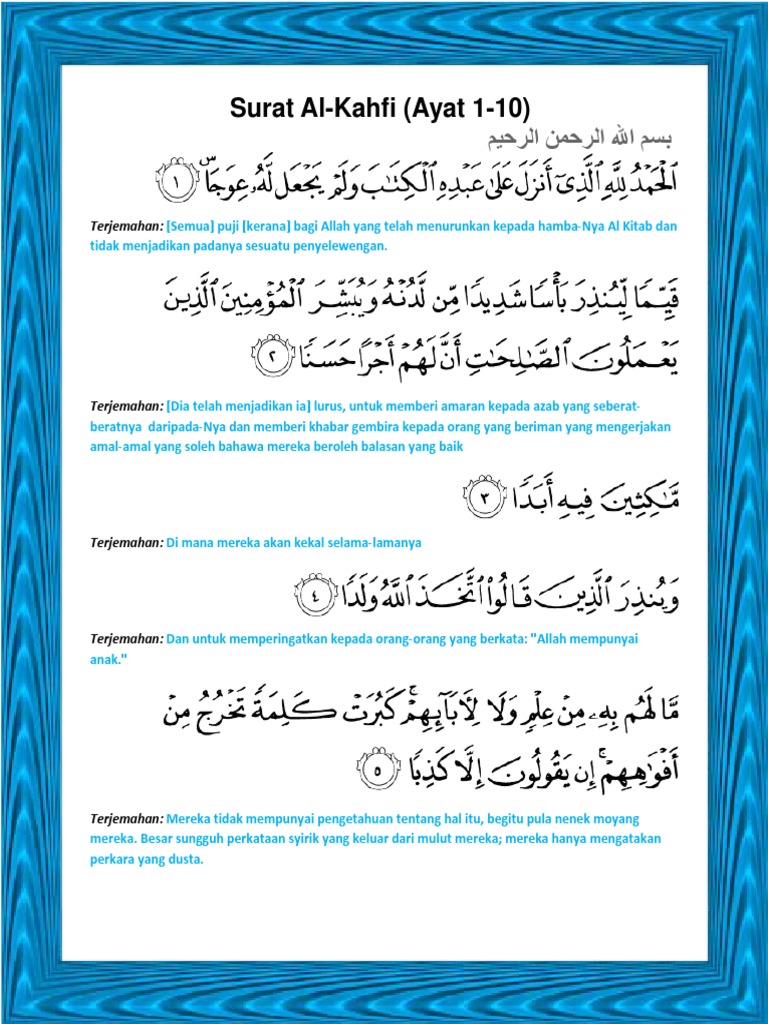 Surat Al-Kahfi (Ayat 1-10)
بسم الله الرحمن الرحيم
ٱلْحَمْدُ لِلَّهِ ٱلَّذِىٓ أَنزَلَ عَلَىٰ عَبْدِهِ ٱلْكِتَٰبَ وَلَمْ يَجْعَل لَّهُۥ عِوَجَاۜ ١
Terjemahan: [Semua] puji [kerana] bagi Allah yang telah menurunkan kepada hamba-Nya Al Kitab dan
tidak menjadikan padanya sesuatu penyelewengan.
قَيِّمًا لِّيُنذِرَ بَأْسًا شَدِيدًا مِّن لَّدُنْهُ وَيُبَشِّرَ ٱلْمُؤْمِنِينَ ٱلَّذِينَ
يَعْمَلُونَ ٱلصَّٰلِحَٰتِ أَنَّ لَهُمْ أَجْرًا حَسَنًا ٢
Terjemahan: [Dia telah menjadikan ia] lurus, untuk memberi amaran kepada azab yang seberat-
beratnya daripada-Nya dan memberi khabar gembira kepada orang yang beriman yang mengerjakan
amal-amal yang soleh bahawa mereka beroleh balasan yang baik
مَّٰكِثِينَ فِيهِ أَبَدًا ٣
Terjemahan: Di mana mereka akan kekal selama-lamanya
وَيُنذِرَ ٱلَّذِينَ قَالُوا۟ ٱتَّخَذَ ٱللَّهُ وَلَدًا ٤
Terjemahan: Dan untuk memperingatkan kepada orang-orang yang berkata: "Allah mempunyai
anak."
مَّا لَهُم بِهِۦ مِنْ عِلْمٍ وَلَا لِءَابَآئِهِمْ ۚ كَبُرَتْ كَلِمَةً تَخْرُجُ مِنْ
أَفْوَٰهِهِمْ ۚ إِن يَقُولُونَ إِلَّا كَذِبًا ٥
Terjemahan: Mereka tidak mempunyai pengetahuan tentang hal itu, begitu pula nenek moyang
mereka. Besar sungguh perkataan syirik yang keluar dari mulut mereka; mereka hanya mengatakan
perkara yang dusta.